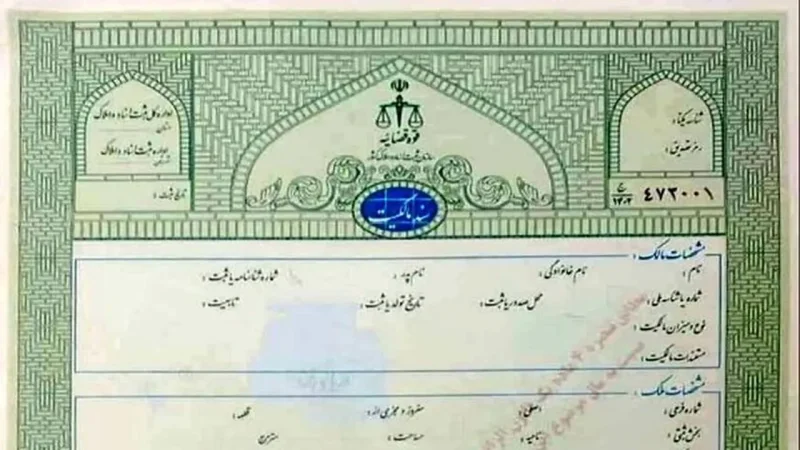 قوه قضائیه
سازمان ثبت اسناد و املاک کشور
سند مالکیت
اداره کل ثبت اسناد و املاک
استان :
اداره ثبت اسناد و املاک
شهرستان :
تاریخ ثبت :
شناسه یکتا :
رمز تصدیق :
۴۷۳۰۰۱
مشخصات مالک :
نام : نام خانوادگی : نام پدر : شماره شناسنامه یا ثبت :
شماره یا شناسه ملی : محل صدور یا ثبت : تاریخ تولد یا ثبت : تابعیت :
نوع و میزان مالکیت :
مستندات مالکیت :
مشخصات ملک :
شماره فرعی : اصلی : مفروز و مجزی از : قطعه :
بخش ثبتی : ناحیه : مساحت : مترمربع